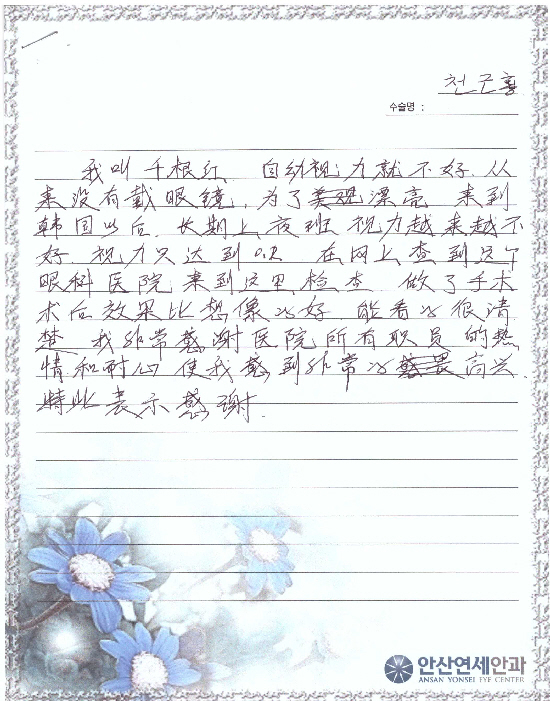 천근홍
수술명 :
我叫千根红 自幼视力就不好 从
来没有戴眼镜, 为了美观漂亮 来到
韩国以后 长期上夜班 视力越来越不
好. 视力只达到0.2 在网上查到这个
眼科医院 来到这里检查 做了手术
术后效果比想像的好 能看的很清
楚 我非常感谢医院所有职员的热
情和耐心 使我感到非常的 高兴.
特此表示感谢.
안산연세안과
ANSAN YONSEI EYE CENTER